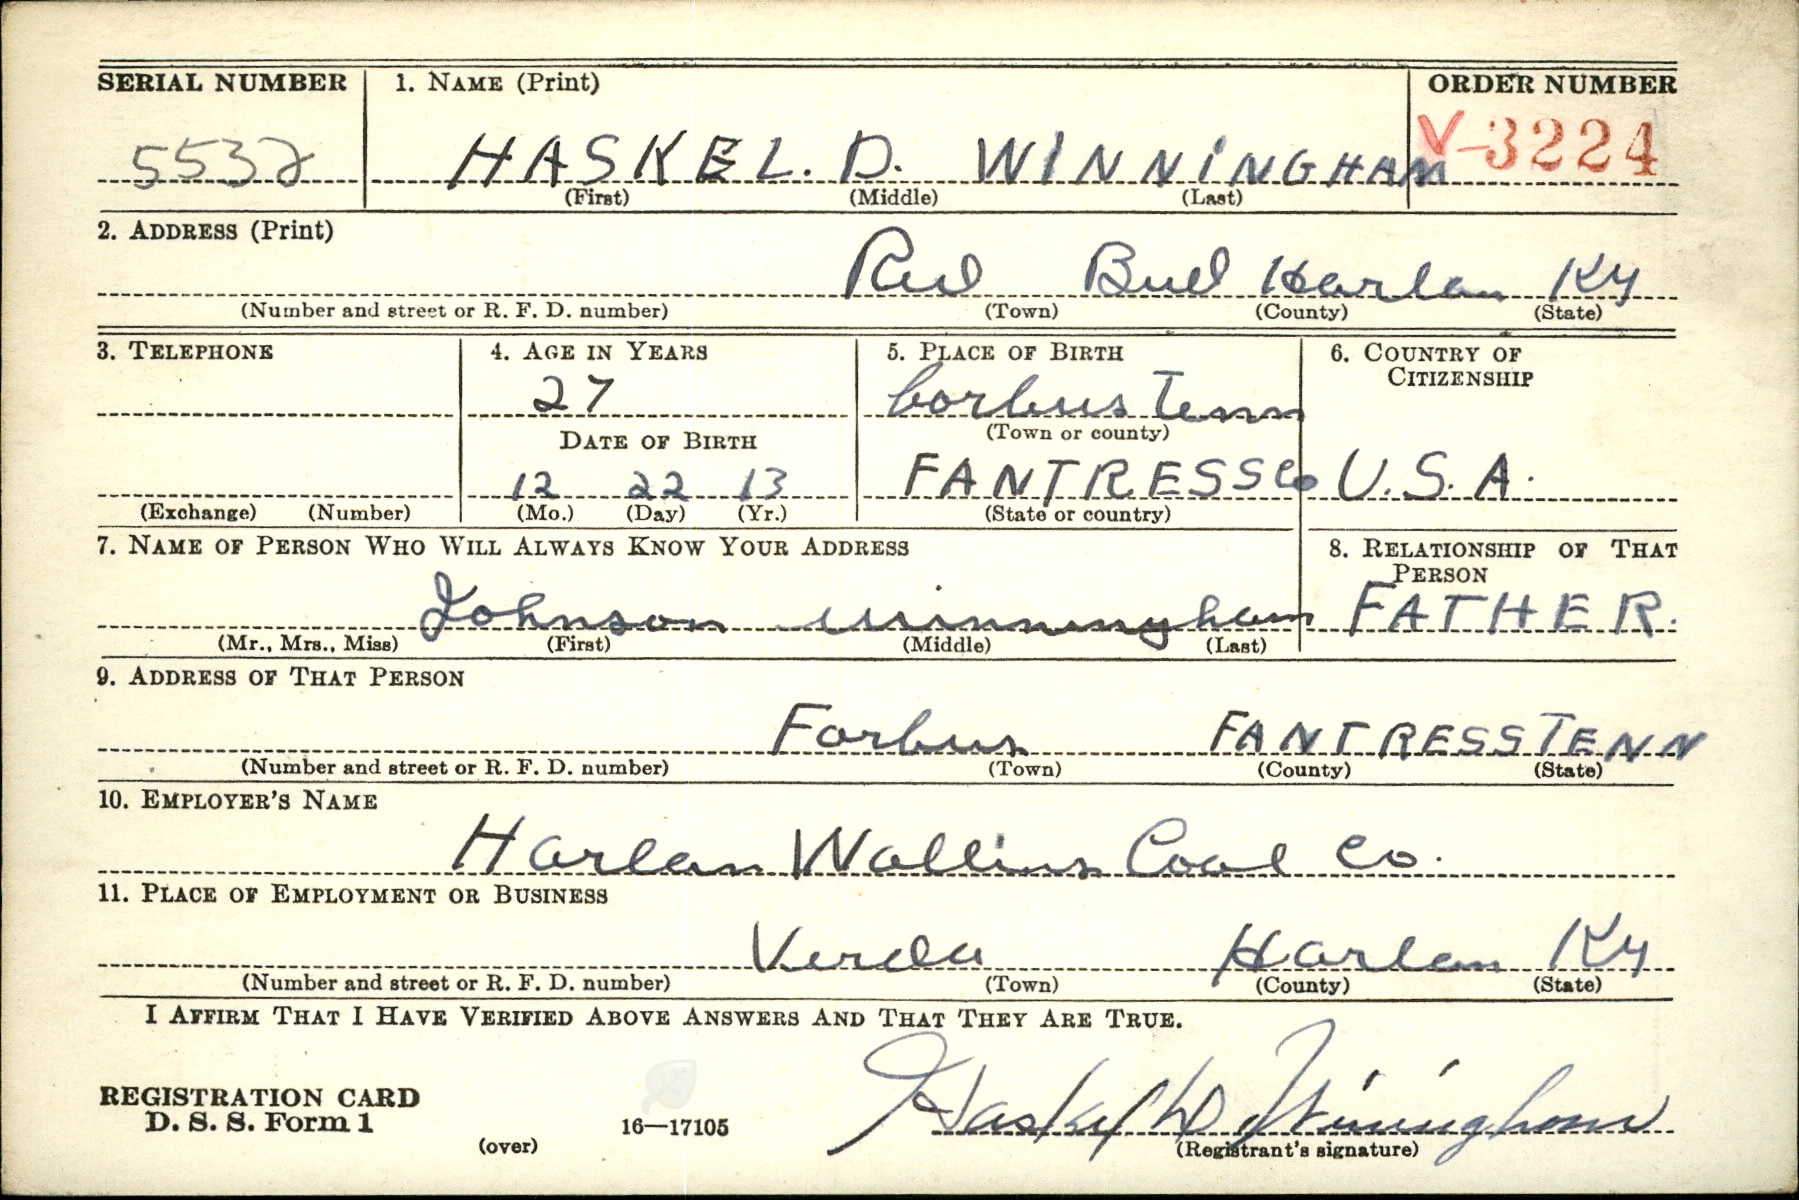 SERIAL NUMBER 1. NAME (Print) ORDER NUMBER
5532 HASKEL. D. WINNINGHAM V-3224
(First) (Middle) (Last)
2. ADDRESS (Print)
Red Bud Harlan Ky
(Number and street or R. F. D. number) (Town) (County) (State)
3. TELEPHONE 4. AGE IN YEARS 5. PLACE OF BIRTH 6. COUNTRY OF CITIZENSHIP
27 Forbus Tenn
DATE OF BIRTH (Town or county)
12 22 13 FANTRESS Co U.S.A.
(Exchange) (Number) (Mo.) (Day) (Yr.) (State or country)
7. NAME OF PERSON WHO WILL ALWAYS KNOW YOUR ADDRESS 8. RELATIONSHIP OF THAT PERSON
Johnson Winningham FATHER.
(Mr., Mrs., Miss) (First) (Middle) (Last)
9. ADDRESS OF THAT PERSON
Forbus FANTRESS TENN
(Number and street or R. F. D. number) (Town) (County) (State)
10. EMPLOYER'S NAME
Harlan Wallins Coal Co.
11. PLACE OF EMPLOYMENT OR BUSINESS
Verda Harlan Ky
(Number and street or R. F. D. number) (Town) (County) (State)
I AFFIRM THAT I HAVE VERIFIED ABOVE ANSWERS AND THAT THEY ARE TRUE.
REGISTRATION CARD
D. S. S. Form 1 Haskel D Winingham
(over) 16—17105 (Registrant's signature)